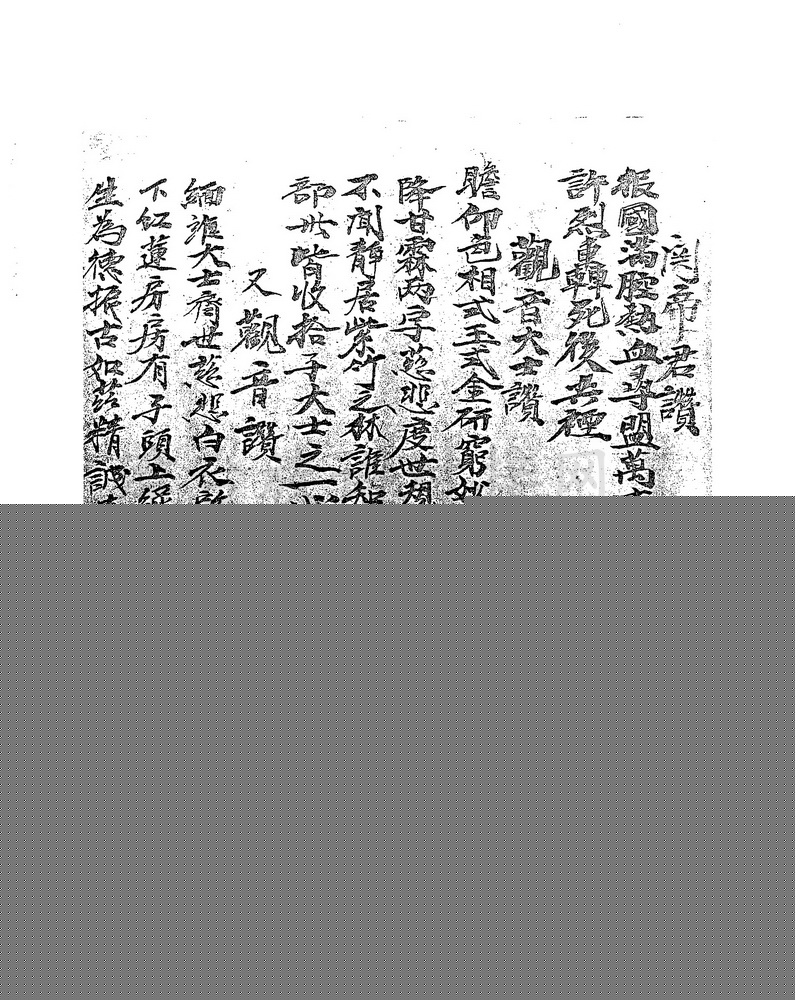 関帝君讚
報國滿腔熱血尋盟萬
許烈轟轟死後英
觀音大士讚
瞻仰色相式玉式金研窮妙
降甘霖两字慈悲度世
不聞静居紫竹之林誰知
部世皆收拾于大士之一
又觀音讚
緬淮大士齊世慈悲白衣
下紅蓮房房有子頭上
生為德振古如兹精誠